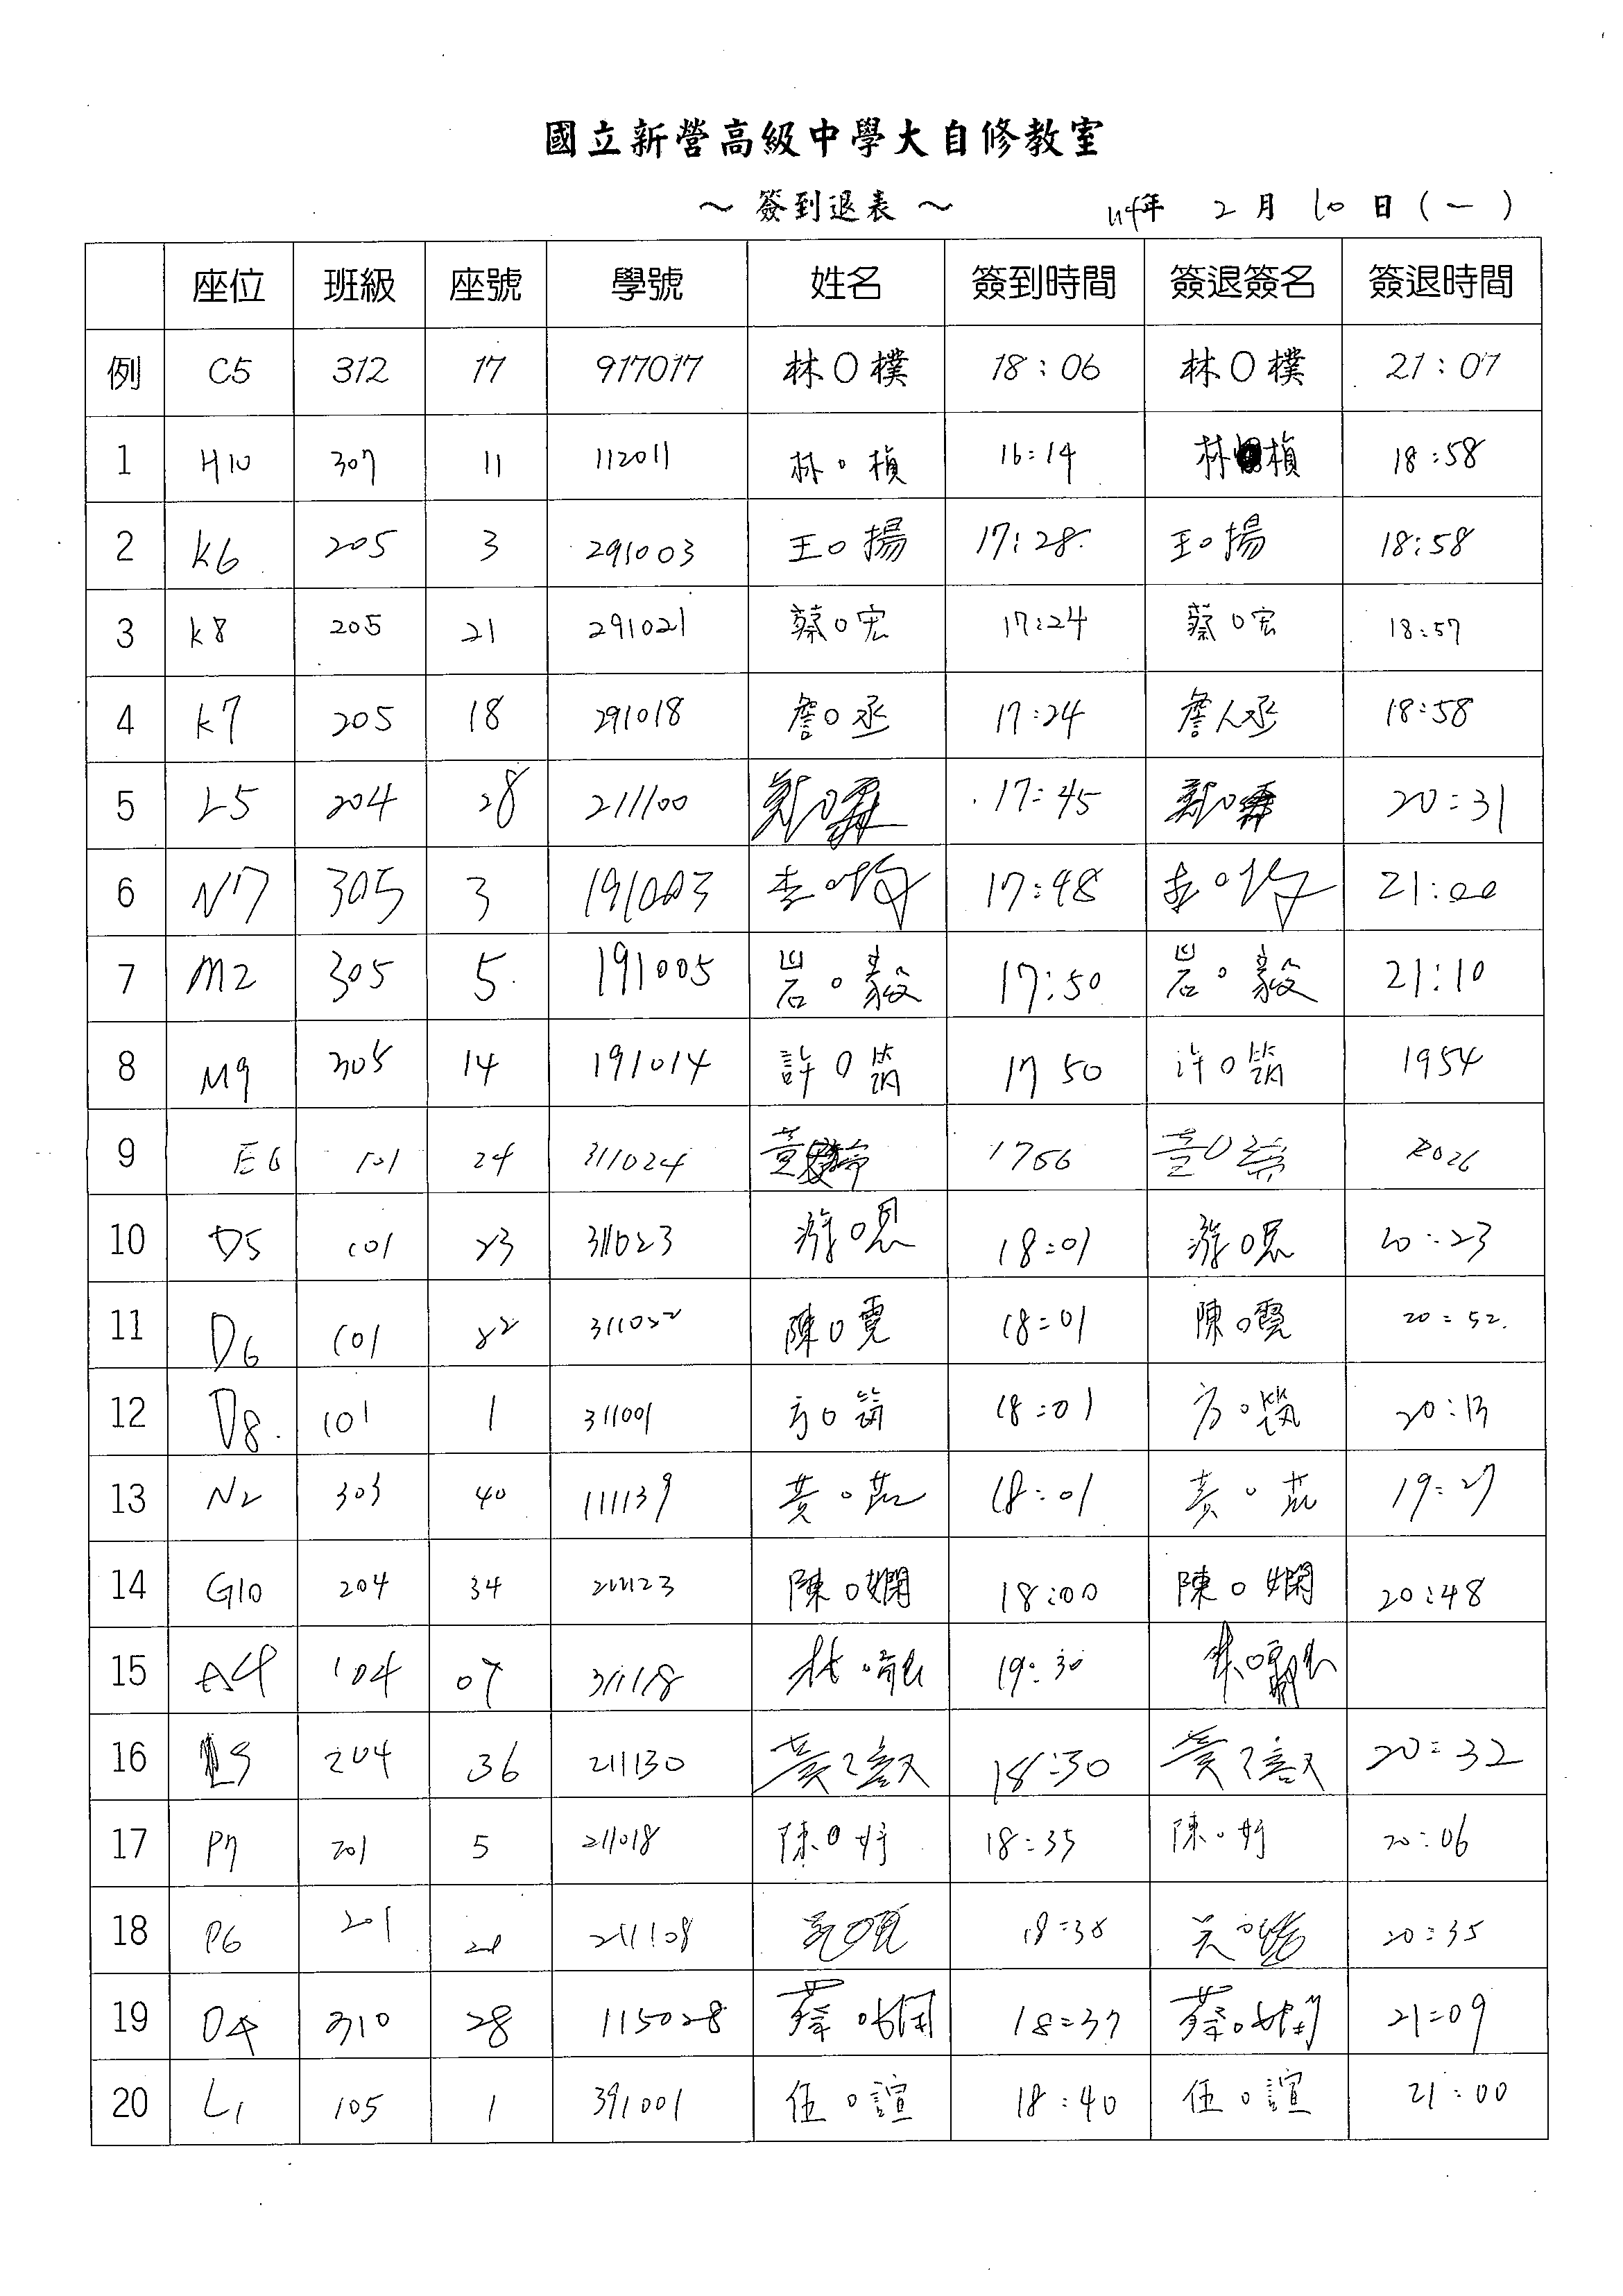 國立新營高級中學大自修教室
～ 簽到退表 ～ 114年 2月 10日(一)
座位 班級 座號 學號 姓名 簽到時間 簽退簽名 簽退時間
例 C5 312 17 917017 林〇樸 18:06 林〇樸 21:07
1 H10 307 11 112011 林〇楨 16:14 林 楨 18:58
2 K6 205 3 291003 王〇揚 17:28 王〇揚 18:58
3 K8 205 21 291021 蔡〇宏 17:24 蔡〇宏 18:57
4 K7 205 18 291018 詹〇丞 17:24 詹人丞 18:58
5 L5 204 28 211100 鄭〇 17:45 鄭〇 20:31
6 N7 305 3 191003 李〇 17:48 李〇 21:00
7 M2 305 5 191005 岩〇毅 17:50 岩〇毅 21:10
8 M9 305 14 191014 許〇筑 17 50 许〇筑 1954
9 E6 101 24 311024 黃 1756 黃〇 2026
10 D5 101 23 311023 游〇恩 18:01 游〇恩 20:23
11 D6 101 22 311022 陳〇霓 18:01 陳〇霓 20:52
12 D8 101 1 311001 方〇筑 18:01 方〇筑 20:13
13 N2 303 40 111139 黃〇 18:01 黃〇 19:27
14 G10 204 34 211123 陳〇嫻 18:00 陳〇嫻 20:48
15 A4 104 07 311118 林〇 19:30
16 L9 204 36 211130 黃 18:30 黃 20:32
17 P7 201 5 211018 陳〇妤 18:35 陳〇妤 20:06
18 P6 201 211108 18:38 20:35
19 O4 310 28 115028 蔡〇嫻 18:37 蔡〇嫻 21:09
20 L1 105 1 391001 伍〇諠 18:40 伍〇諠 21:00